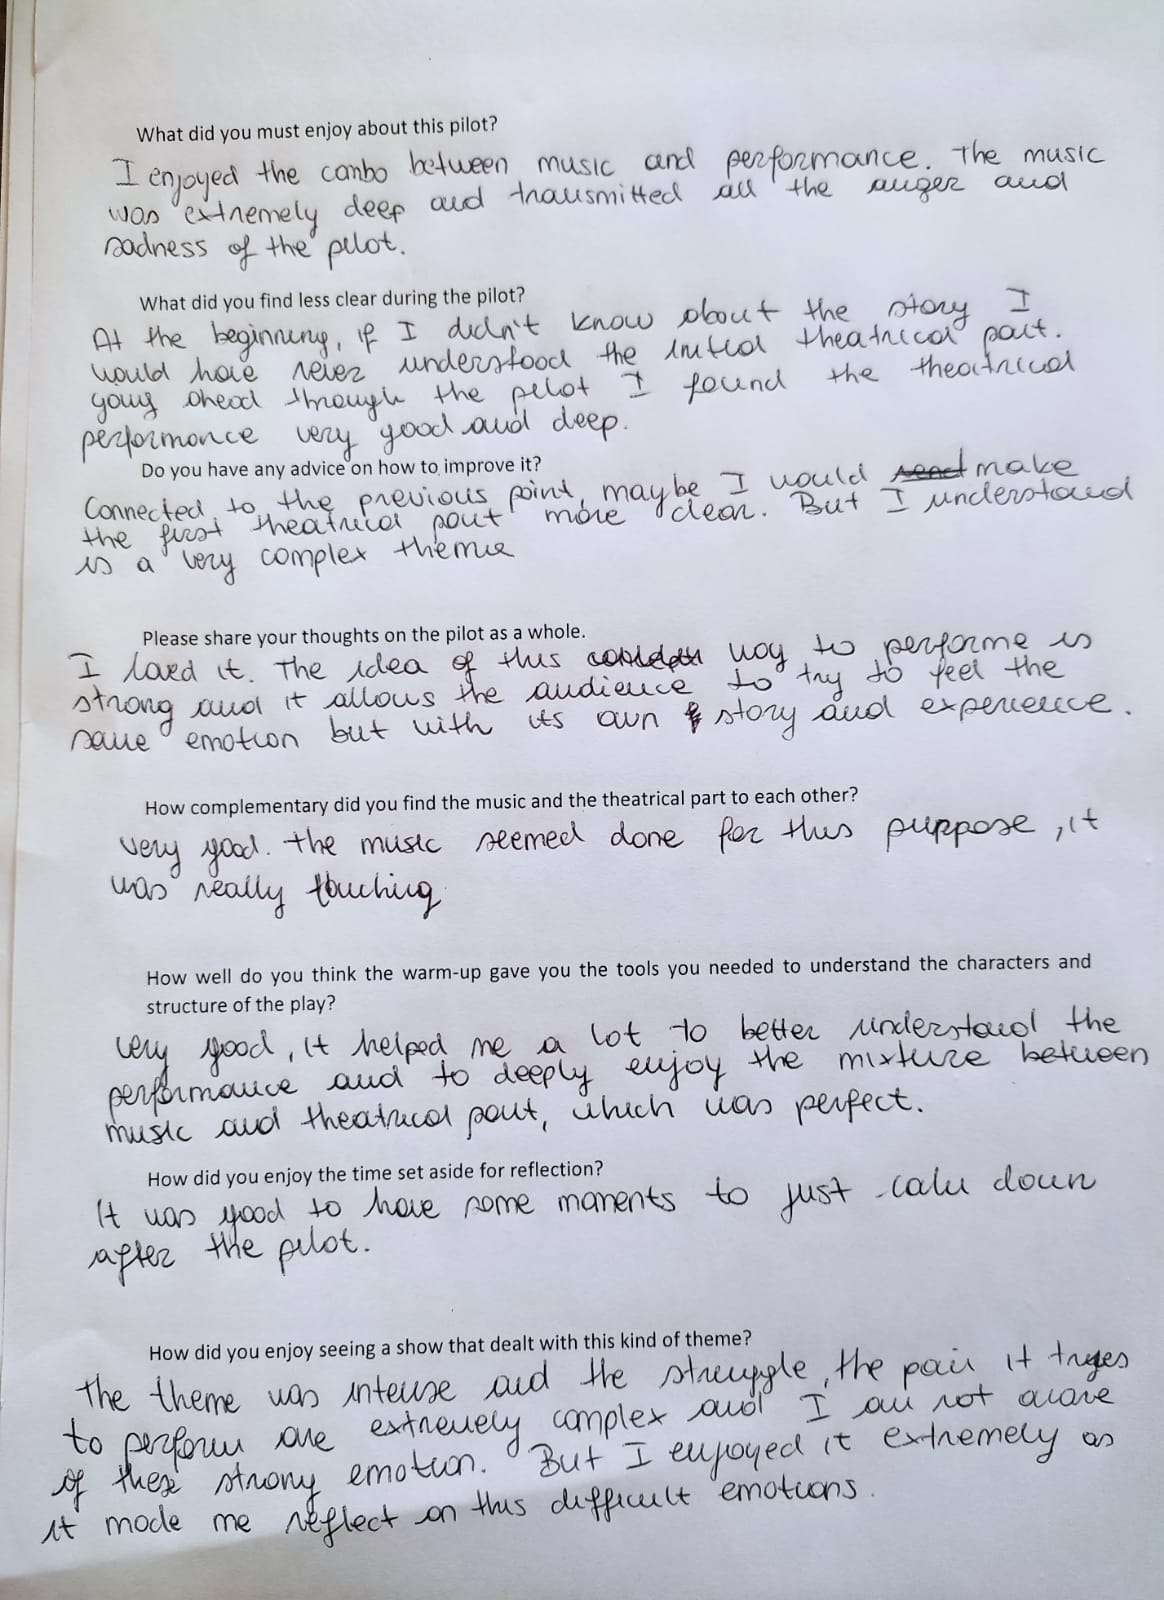 What did you must enjoy about this pilot?
I enjoyed the combo between music and performance. The music
was extremely deep and transmitted all the anger and
sadness of the pilot.
What did you find less clear during the pilot?
At the beginning, if I didn't know about the story I
would have never understood the initial theatrical part.
going ahead through the pilot I found the theatrical
performance very good and deep.
Do you have any advice on how to improve it?
Connected to the previous point, maybe I would make
the first theatrical part more clear. But I understand
is a very complex theme
Please share your thoughts on the pilot as a whole.
I loved it. The idea of this way to performe is
strong and it allows the audience to try to feel the
same emotion but with its own story and experience.
How complementary did you find the music and the theatrical part to each other?
very good. the music seemed done for this puppose, it
was really touching
How well do you think the warm-up gave you the tools you needed to understand the characters and
structure of the play?
very good, it helped me a lot to better understand the
performance and to deeply enjoy the mixture between
music and theatrical part, which was perfect.
How did you enjoy the time set aside for reflection?
It was good to have some moments to just calm down
after the pilot.
How did you enjoy seeing a show that dealt with this kind of theme?
The theme was intense and the struggle, the pain it tryes
to perform are extremely complex and I am not aware
of these strong emotion. But I enjoyed it extremely as
it made me reflect on this difficult emotions.